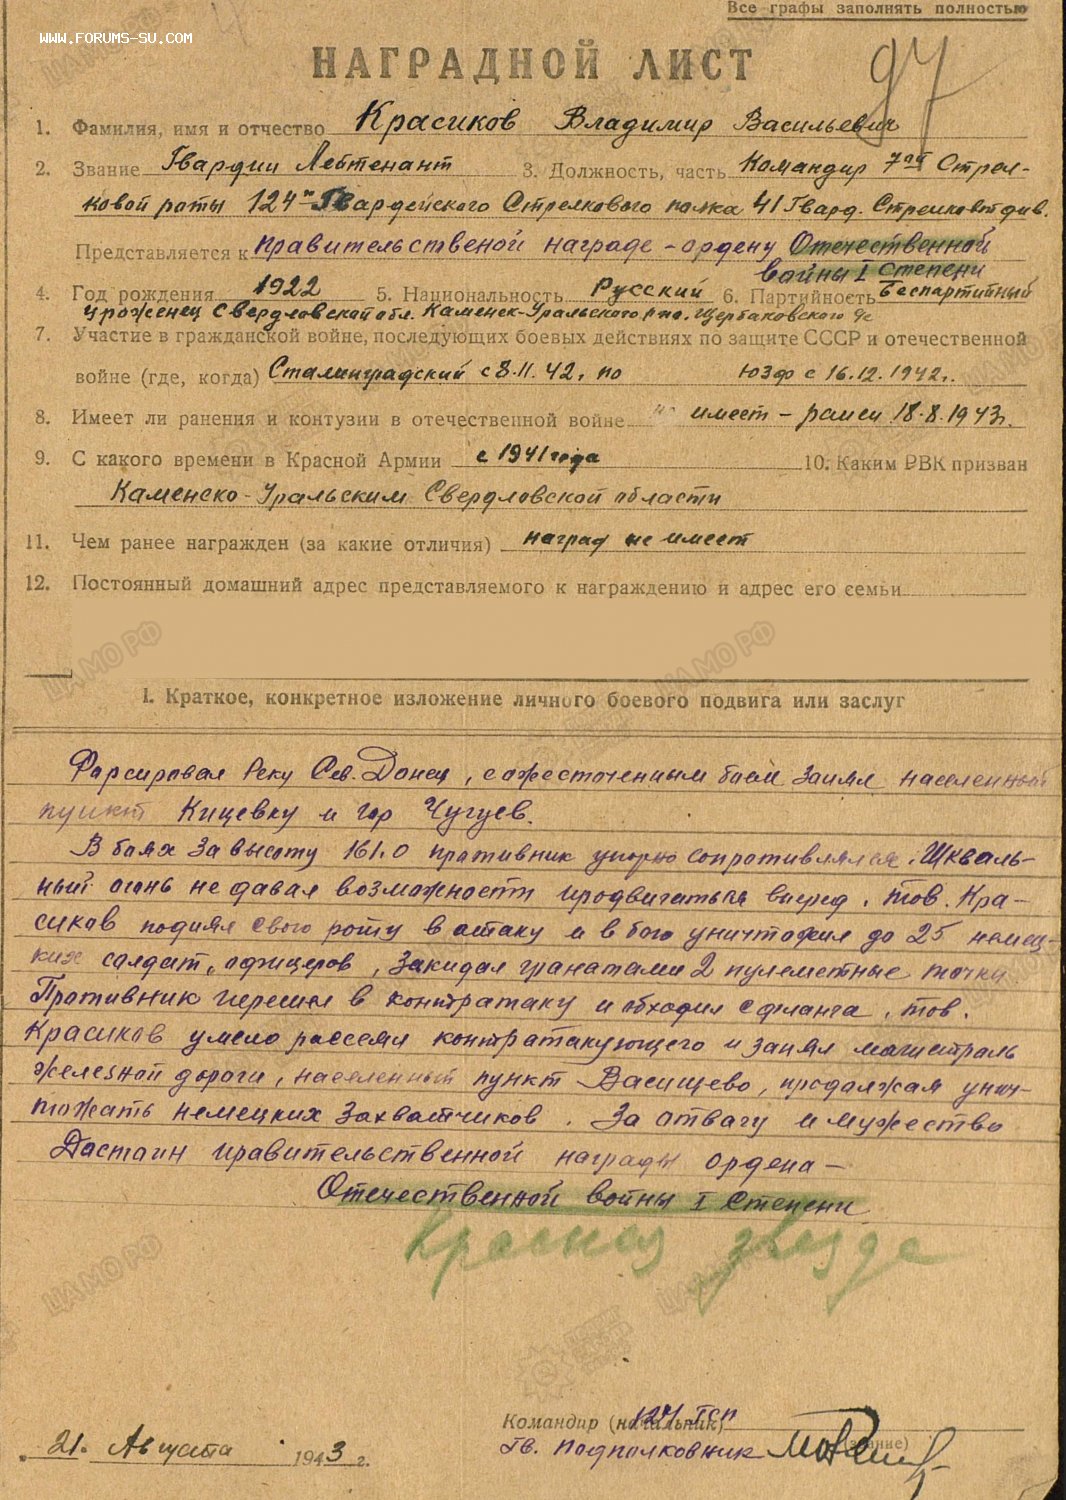 Все графы заполнять полностью
WWW.FORUMS-SU.COM
97
НАГРАДНОЙ ЛИСТ
1. Фамилия, имя и отчество Красиков Владимир Васильевич
2. Звание Гвардии Лейтенант 3. Должность, часть Командир 7ой Стрел-
ковой роты 124го Гвардейского Стрелкового полка 41 Гвард. Стрелковой див.
Представляется к правительственой награде - ордену Отечественной
войны I степени
4. Год рождения 1922 5. Национальность Русский 6. Партийность беспартийный
уроженец Свердловской обл. Каменск-Уральского р-на. Щербаковского
7. Участие в гражданской войне, последующих боевых действиях по защите СССР и отечественной
войне (где, когда) Сталинградский с 8.11.42г. по ЮЗФ с 16.12.1942г.
8. Имеет ли ранения и контузии в отечественной войне имеет - ранен 18.8.1943г.
9. С какого времени в Красной Армии с 1941 года 10. Каким РВК призван
Каменско-Уральским Свердловской области
11. Чем ранее награжден (за какие отличия) наград не имеет
12. Постоянный домашний адрес представляемого к награждению и адрес его семьи
I. Краткое, конкретное изложение личного боевого подвига или заслуг
Форсировал Реку Сев. Донец, с ожесточенным боем занял населенный
пункт Кицевку и гор Чугуев.
В боях за высоту 161.0 противник упорно сопротивлялся. Шкваль-
ный огонь не давал возможности продвигаться вперед. тов. Кра-
сиков поднял свою роту в атаку и в бою уничтожил до 25 немец-
ких солдат и офицеров, закидал гранатами 2 пулеметные точки
Противник перешел в контратаку и обходил с фланга. тов.
Красиков умело рассеял контратакующего и занял магистраль
железной дороги, населенный пункт Васищево, продолжая унич-
тожать немецких захватчиков. За отвагу и мужество
Достоин правительственной награды ордена -
Отечественной войны I степени
Красная звезда
Командир (начальник) 124 ГСП
Гв. Подполковник (звание)
" 21. " Августа 1943 г.
ЦАМО РФ